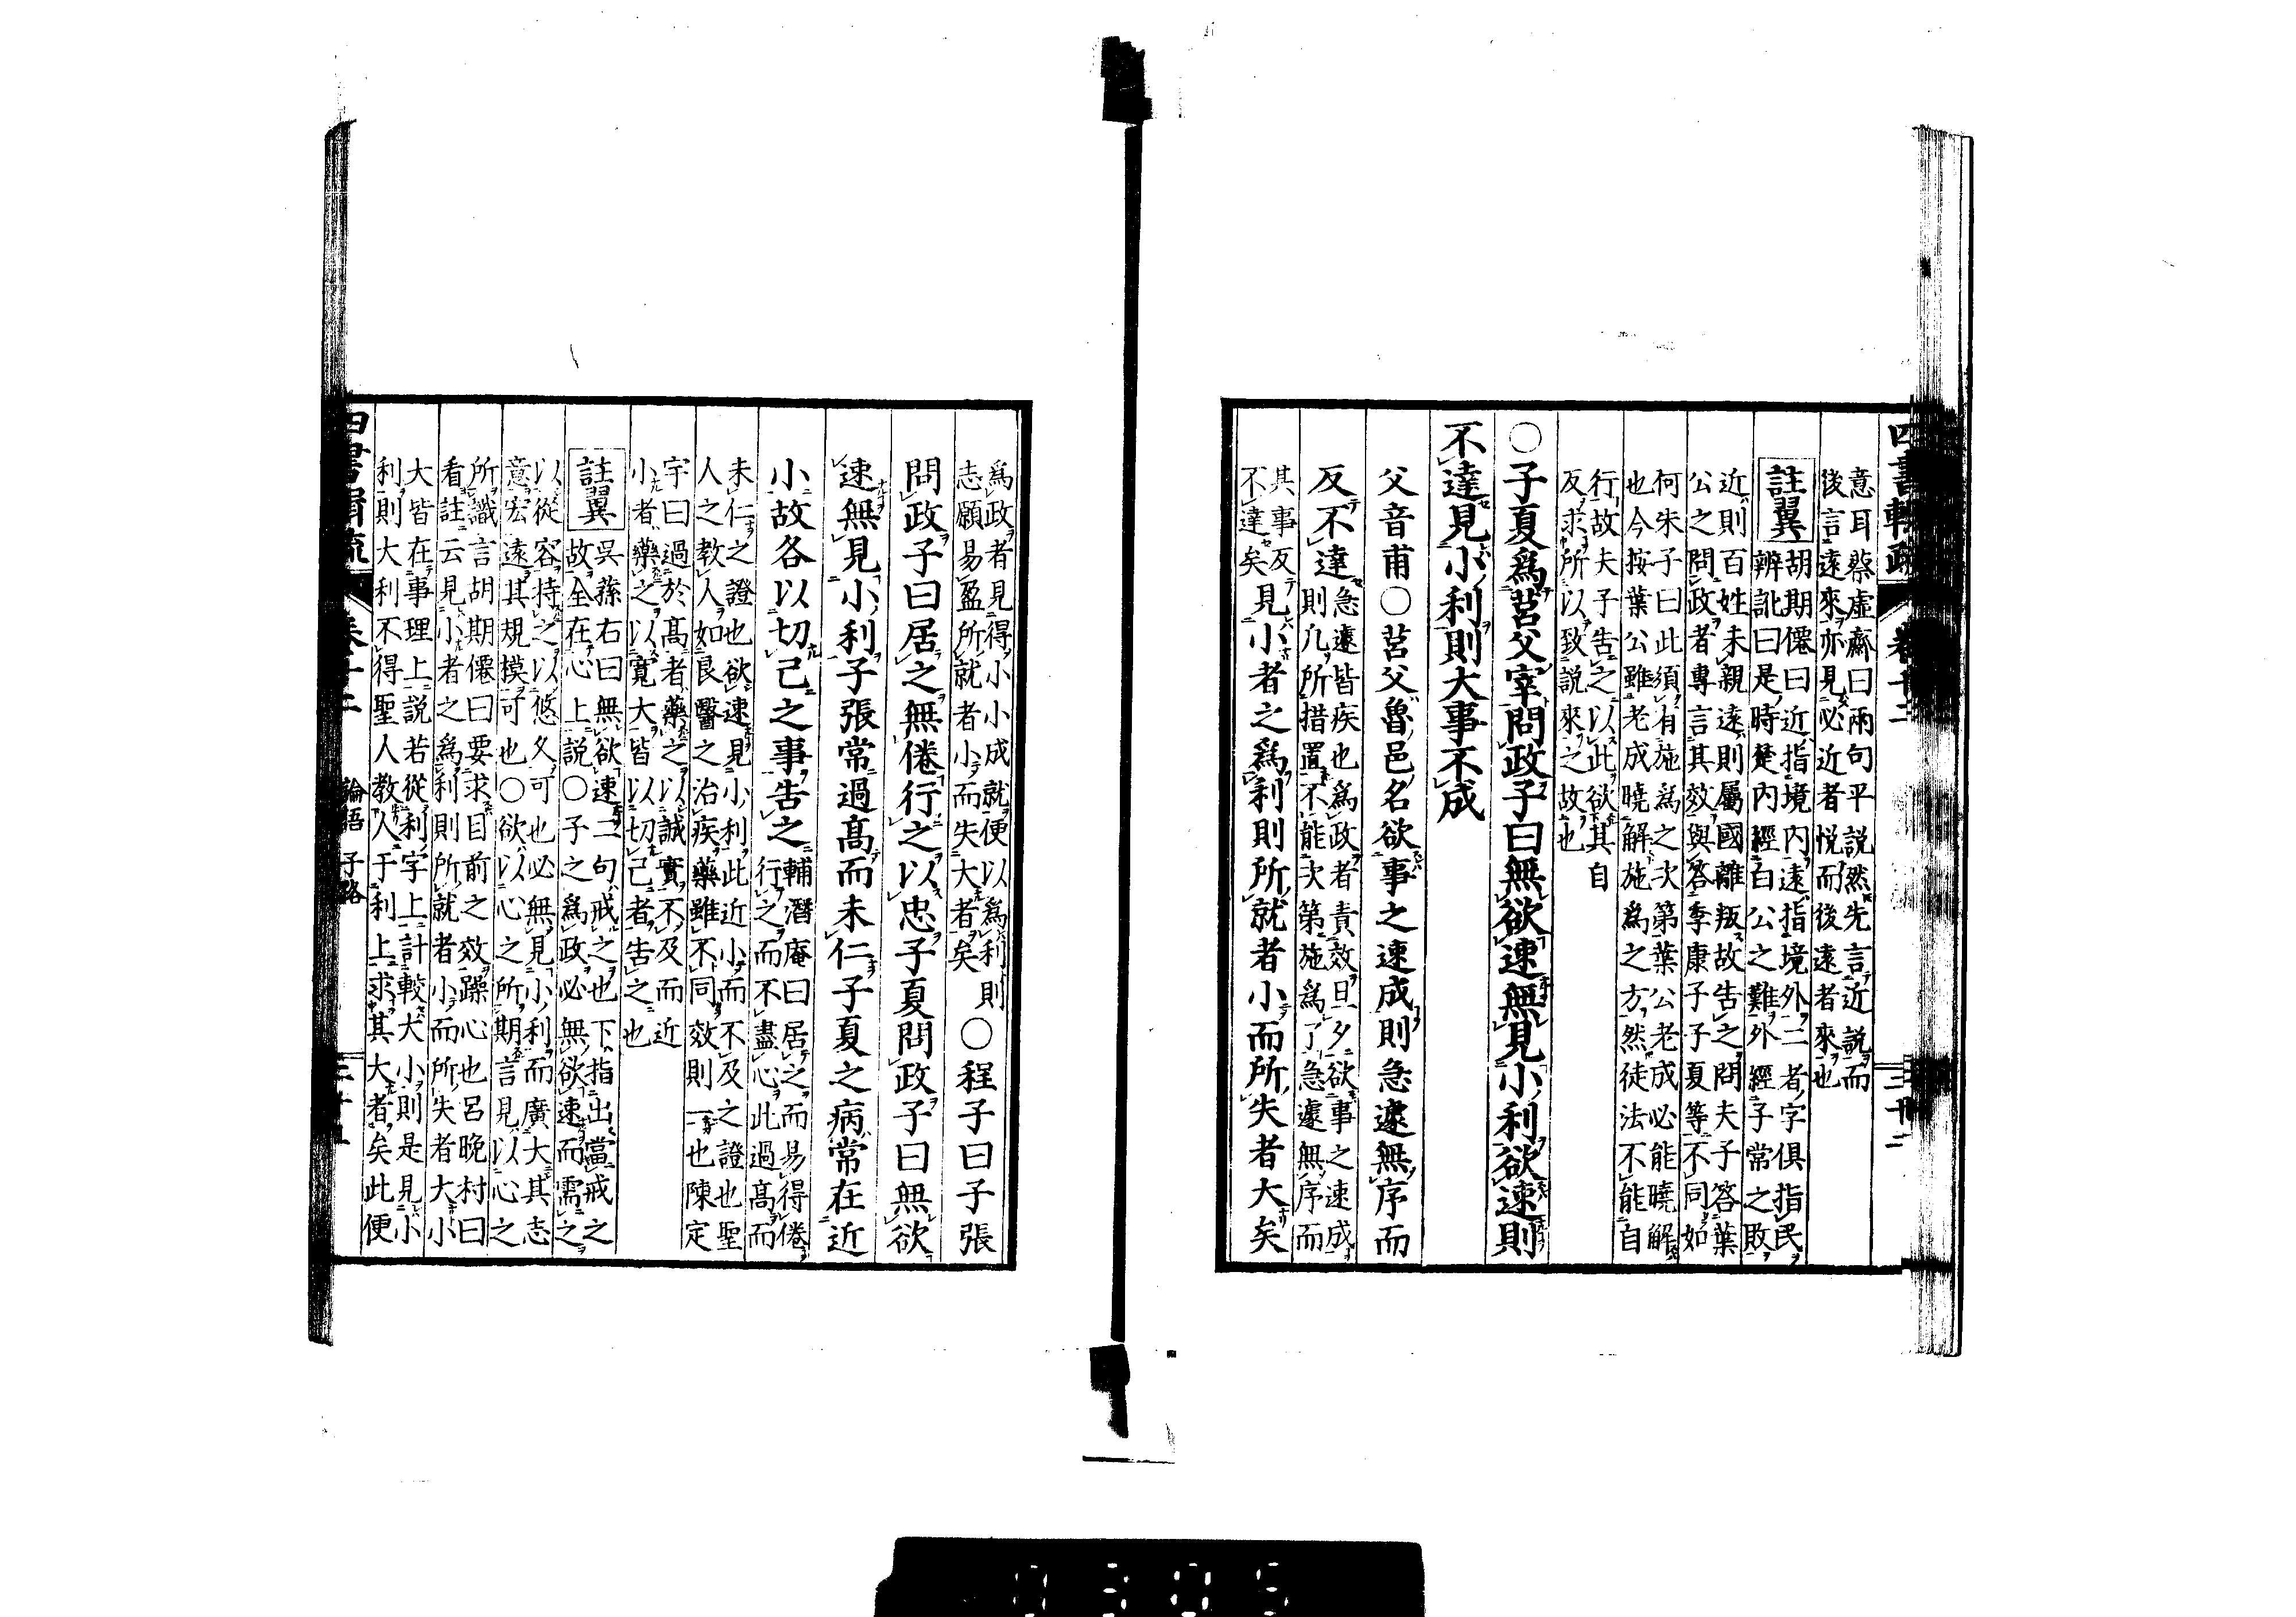 四書輯疏 卷十三 三十二
意耳蔡虛齋曰兩句平説然先言近説而
後言遠來亦見必近者悦而後遠者來也
註翼 胡期僊曰近指境内遠指境外二者字俱指民
辨訛曰是時楚内經白公之難外經子常之敗
近則百姓未親遠則屬國離叛故告之問夫子答葉
公之問政者專言其效與答季康子子夏等不同如
何朱子曰此須有施爲之次第葉公老成必能曉解
也今按葉公雖老成曉解施爲之方然徒法不能自
行故夫子告之以此欲其自
反求所以致説來之故也
〇子夏爲莒父宰問政子曰無欲速無見小利欲速則
不達見小利則大事不成
父音甫〇莒父魯邑名欲事之速成則急遽無序而
反不達 急遽皆疾也爲政者責效旦夕欲事之速成
則凡所措置不能次第施爲了急遽無序而
其事反
不達矣 見小者之爲利則所就者小而所失者大矣
爲政者見得小小成就便以爲利則
志願易盈所就者小而失大者矣 〇程子曰子張
問政子曰居之無倦行之以忠子夏問政子曰無欲
速無見小利子張常過高而未仁子夏之病常在近
小故各以切己之事告之 輔潛庵曰居之而易得倦
行之而不盡心此過高而
未仁之證也欲速見小利此近小而不及之證也聖
人之教人如良醫之治疾藥雖不同效則一也陳定
宇曰過於高者藥之以誠實不及而近
小者藥之以寬大皆以切己者告之也
註翼 吳蓀右曰無欲速二句戒之也下指出當戒之
故全在心上説〇子之爲政必無欲速而需之
以從容持之以悠久可也必無見小利而廣大其志
意宏遠其規模可也〇欲以心之所期言見以心之
所識言胡期僊曰要求目前之效躁心也呂晚村曰
看註云見小者之爲利則所就者小而所失者大小
大皆在事理上説若從利字上計較大小則是見小
利則大利不得聖人教人于利上求其大者矣此便
四書輯疏 卷十三 論語 子路